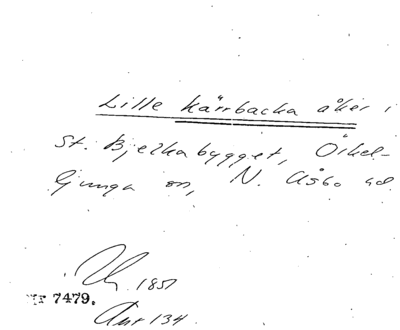 Lille Kärrbacka åker i
St. Bjelkabygget, Örkel-
ljunga sn, N. Åsbo hd.
1851
Nr 7479.
Anr 134